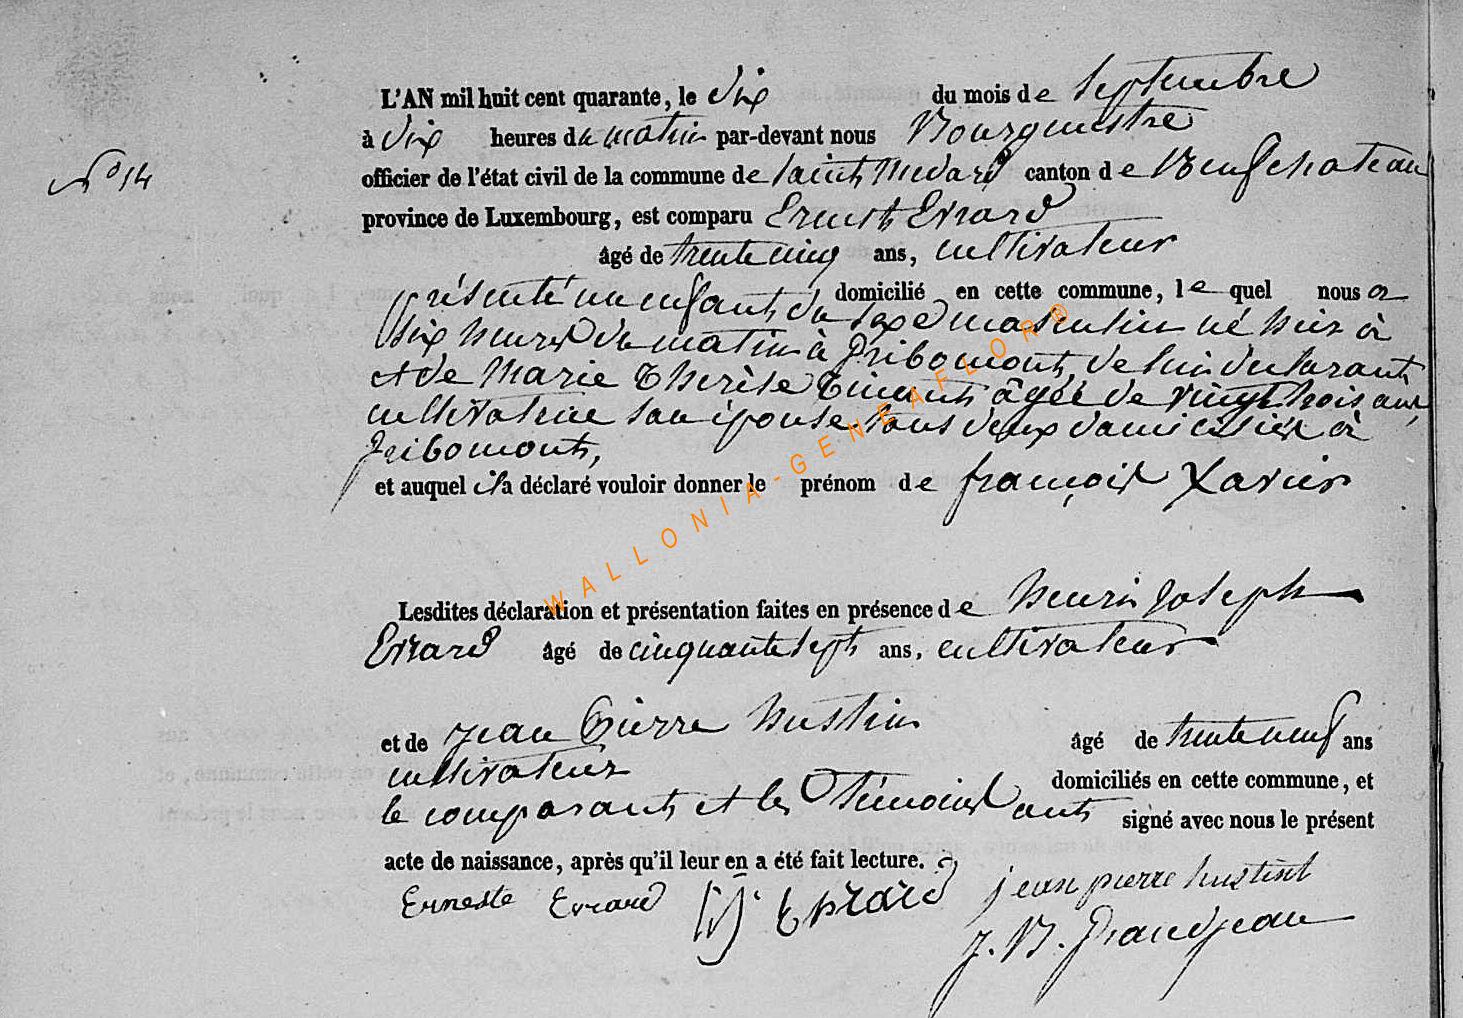 L'AN mil huit cent quarante, le dix du mois de septembre
à dix heures du matin par-devant nous Bourgmestre
N° 14
officier de l'état civil de la commune de Saint Médard canton de Neufchateau
province de Luxembourg, est comparu Ernest Errard
âgé de trente cinq ans, cultivateur
domicilié en cette commune, le quel nous a
présenté un enfant du sexe masculin né hier à
dix heures du matin à Gribomont, de lui déclarant
et de Marie Thérèse Tinant âgée de vingt trois ans,
cultivatrice son épouse, tous deux domiciliés à
Gribomont,
et auquel il a déclaré vouloir donner le prénom de françois Xavier
Lesdites déclaration et présentation faites en présence de henri Joseph
Errard âgé de cinquante sept ans, cultivateur
et de Jean Pierre hustin âgé de trente neuf ans
cultivateur domiciliés en cette commune, et
le comparant et les témoins ont signé avec nous le présent
acte de naissance, après qu'il leur en a été fait lecture.
Erneste Errard Errard jean pierre hustin
J. B. Grandjean
WALLONIA-GENEAFLOR®